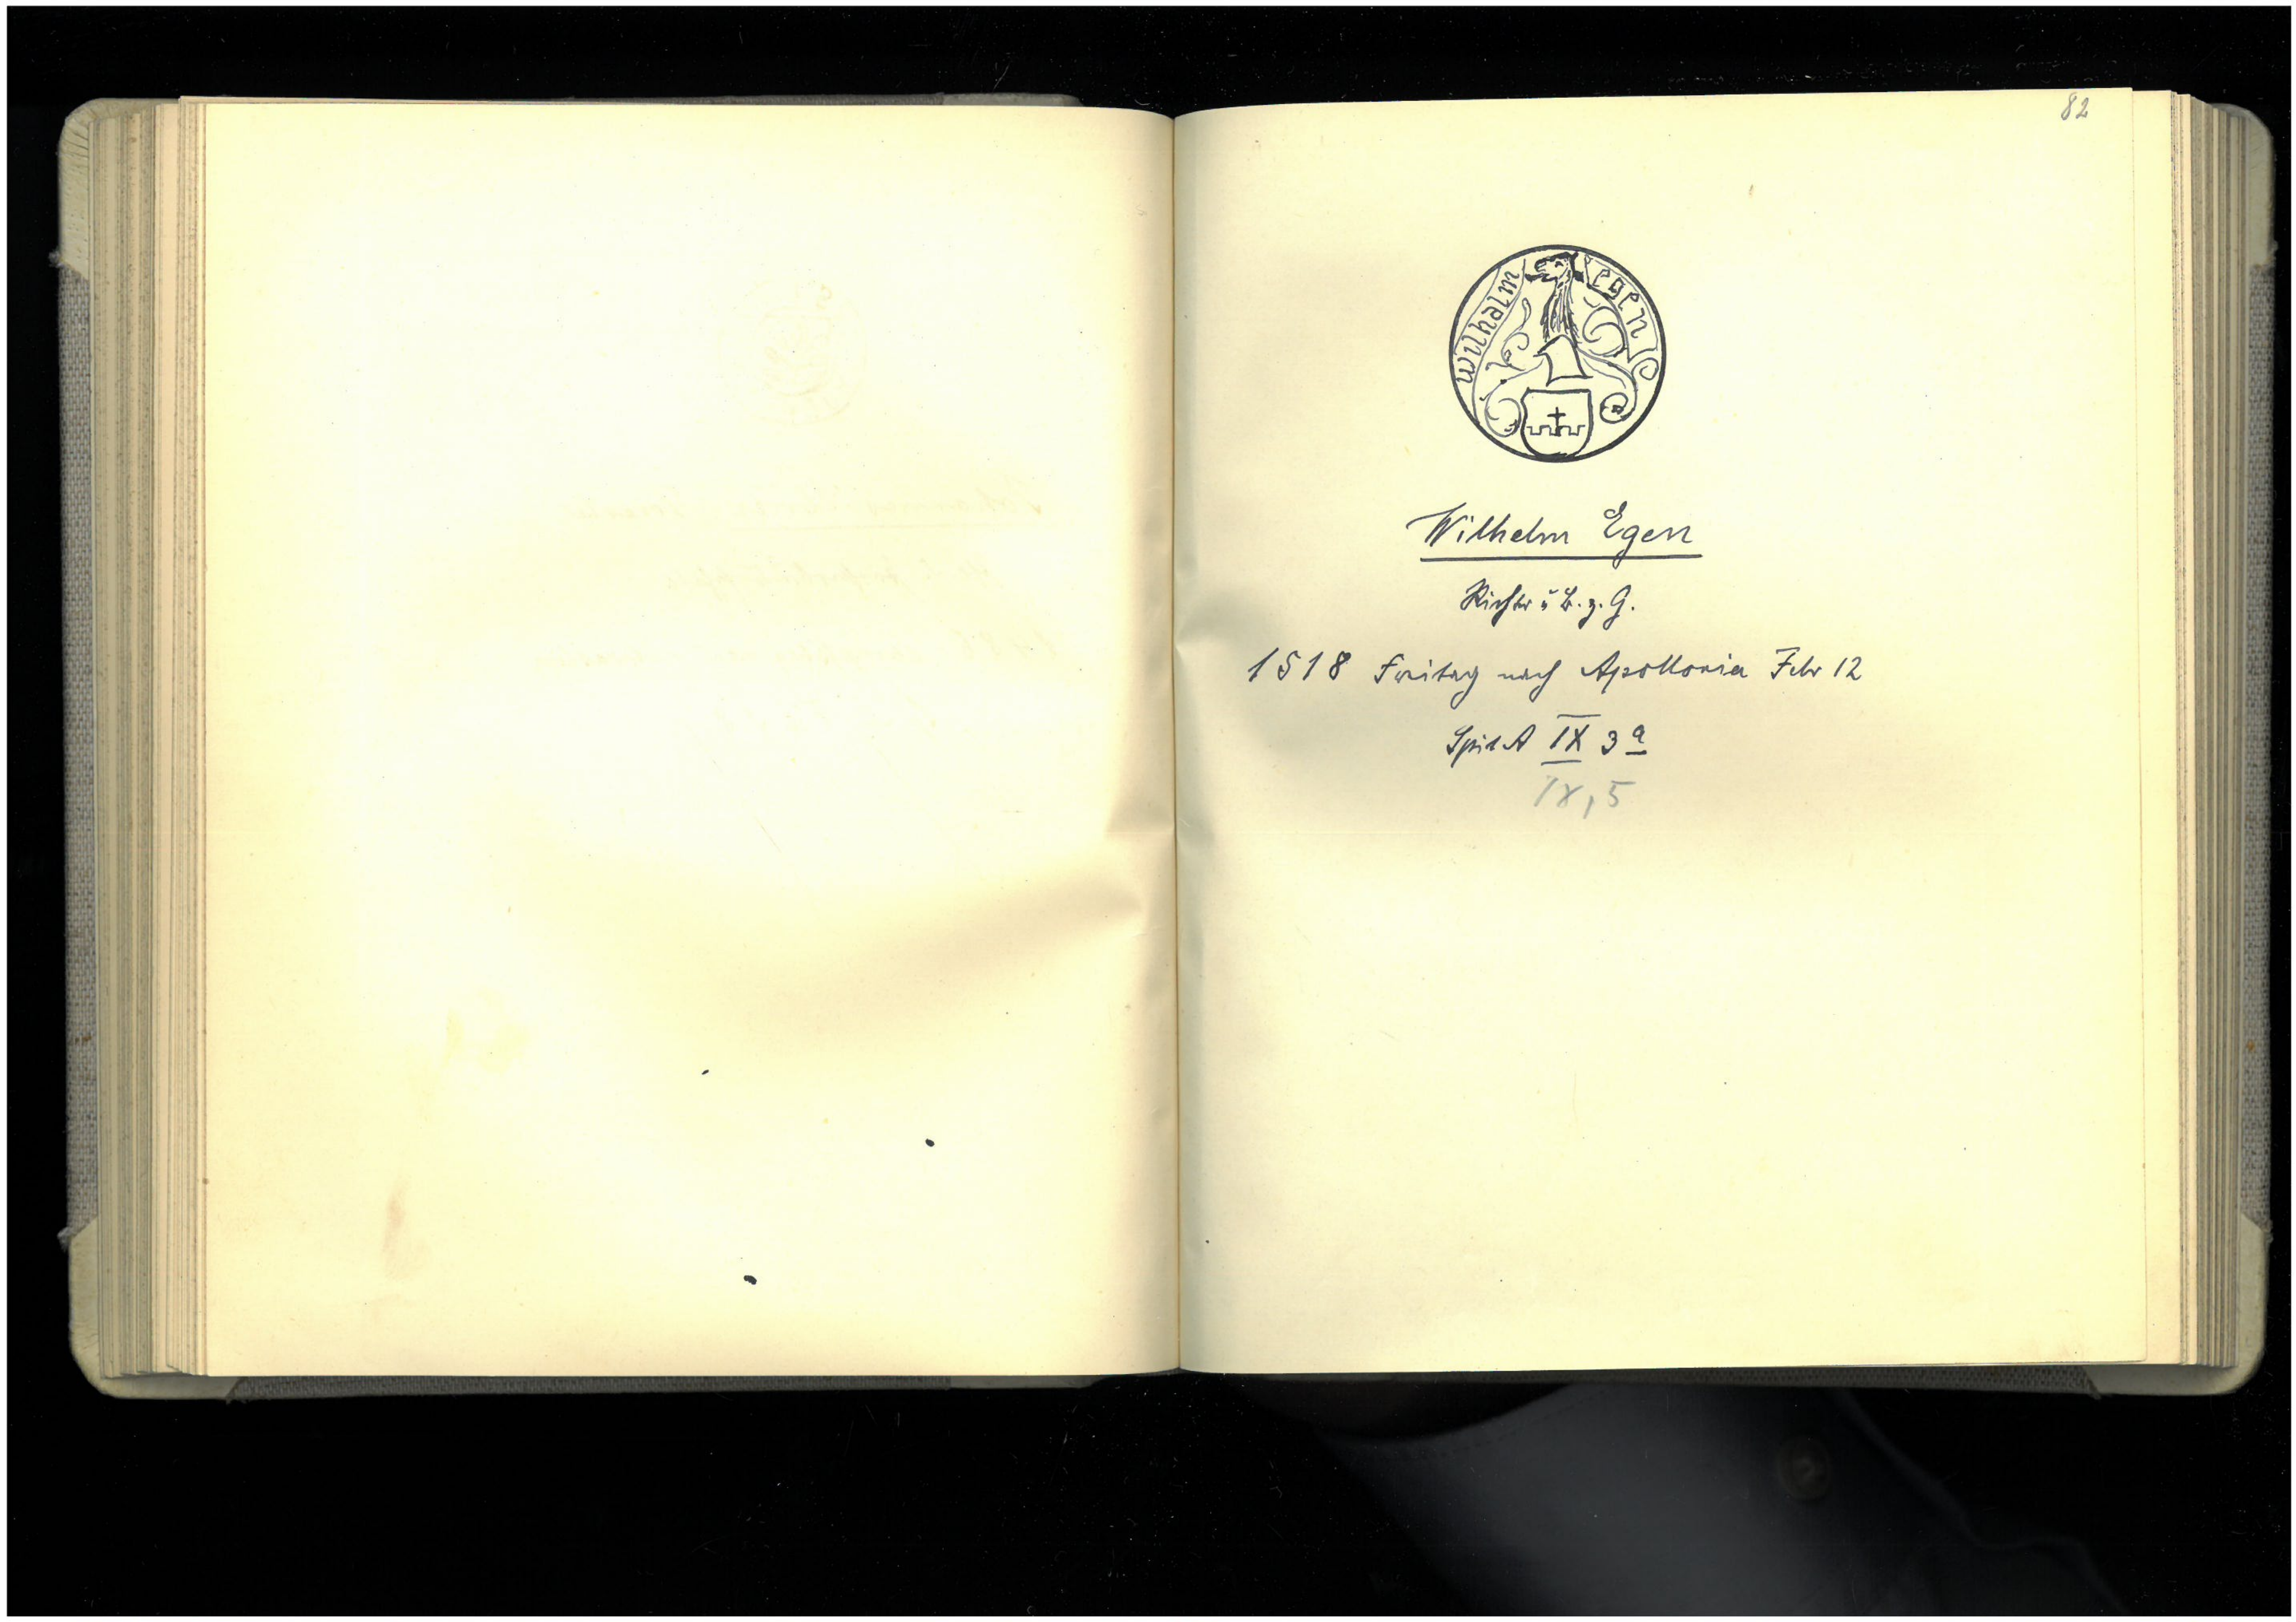 82
wilhalm egen
Wilhelm Egen
Richter u. B. z. G.
1518 Freitag nach Apollonia Febr 12
Spit A IX 3 a
IX, 5